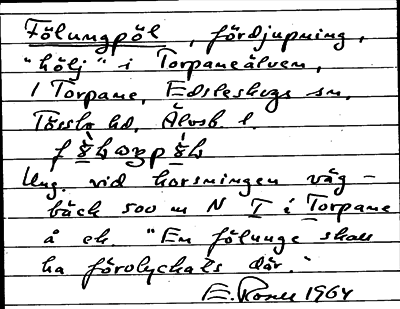 Fölungpöl, fördjupning,
"hölj" i Torpaneälven,
1 Torpane, Edsleskogs sn,
Tössbo hd, Älvsb. l.
Ung. vid korsningen väg –
bäck 500 m N T i Torpane
å ek. "En fölunge skall
ha förolyckats där."
E. Rosell 1964